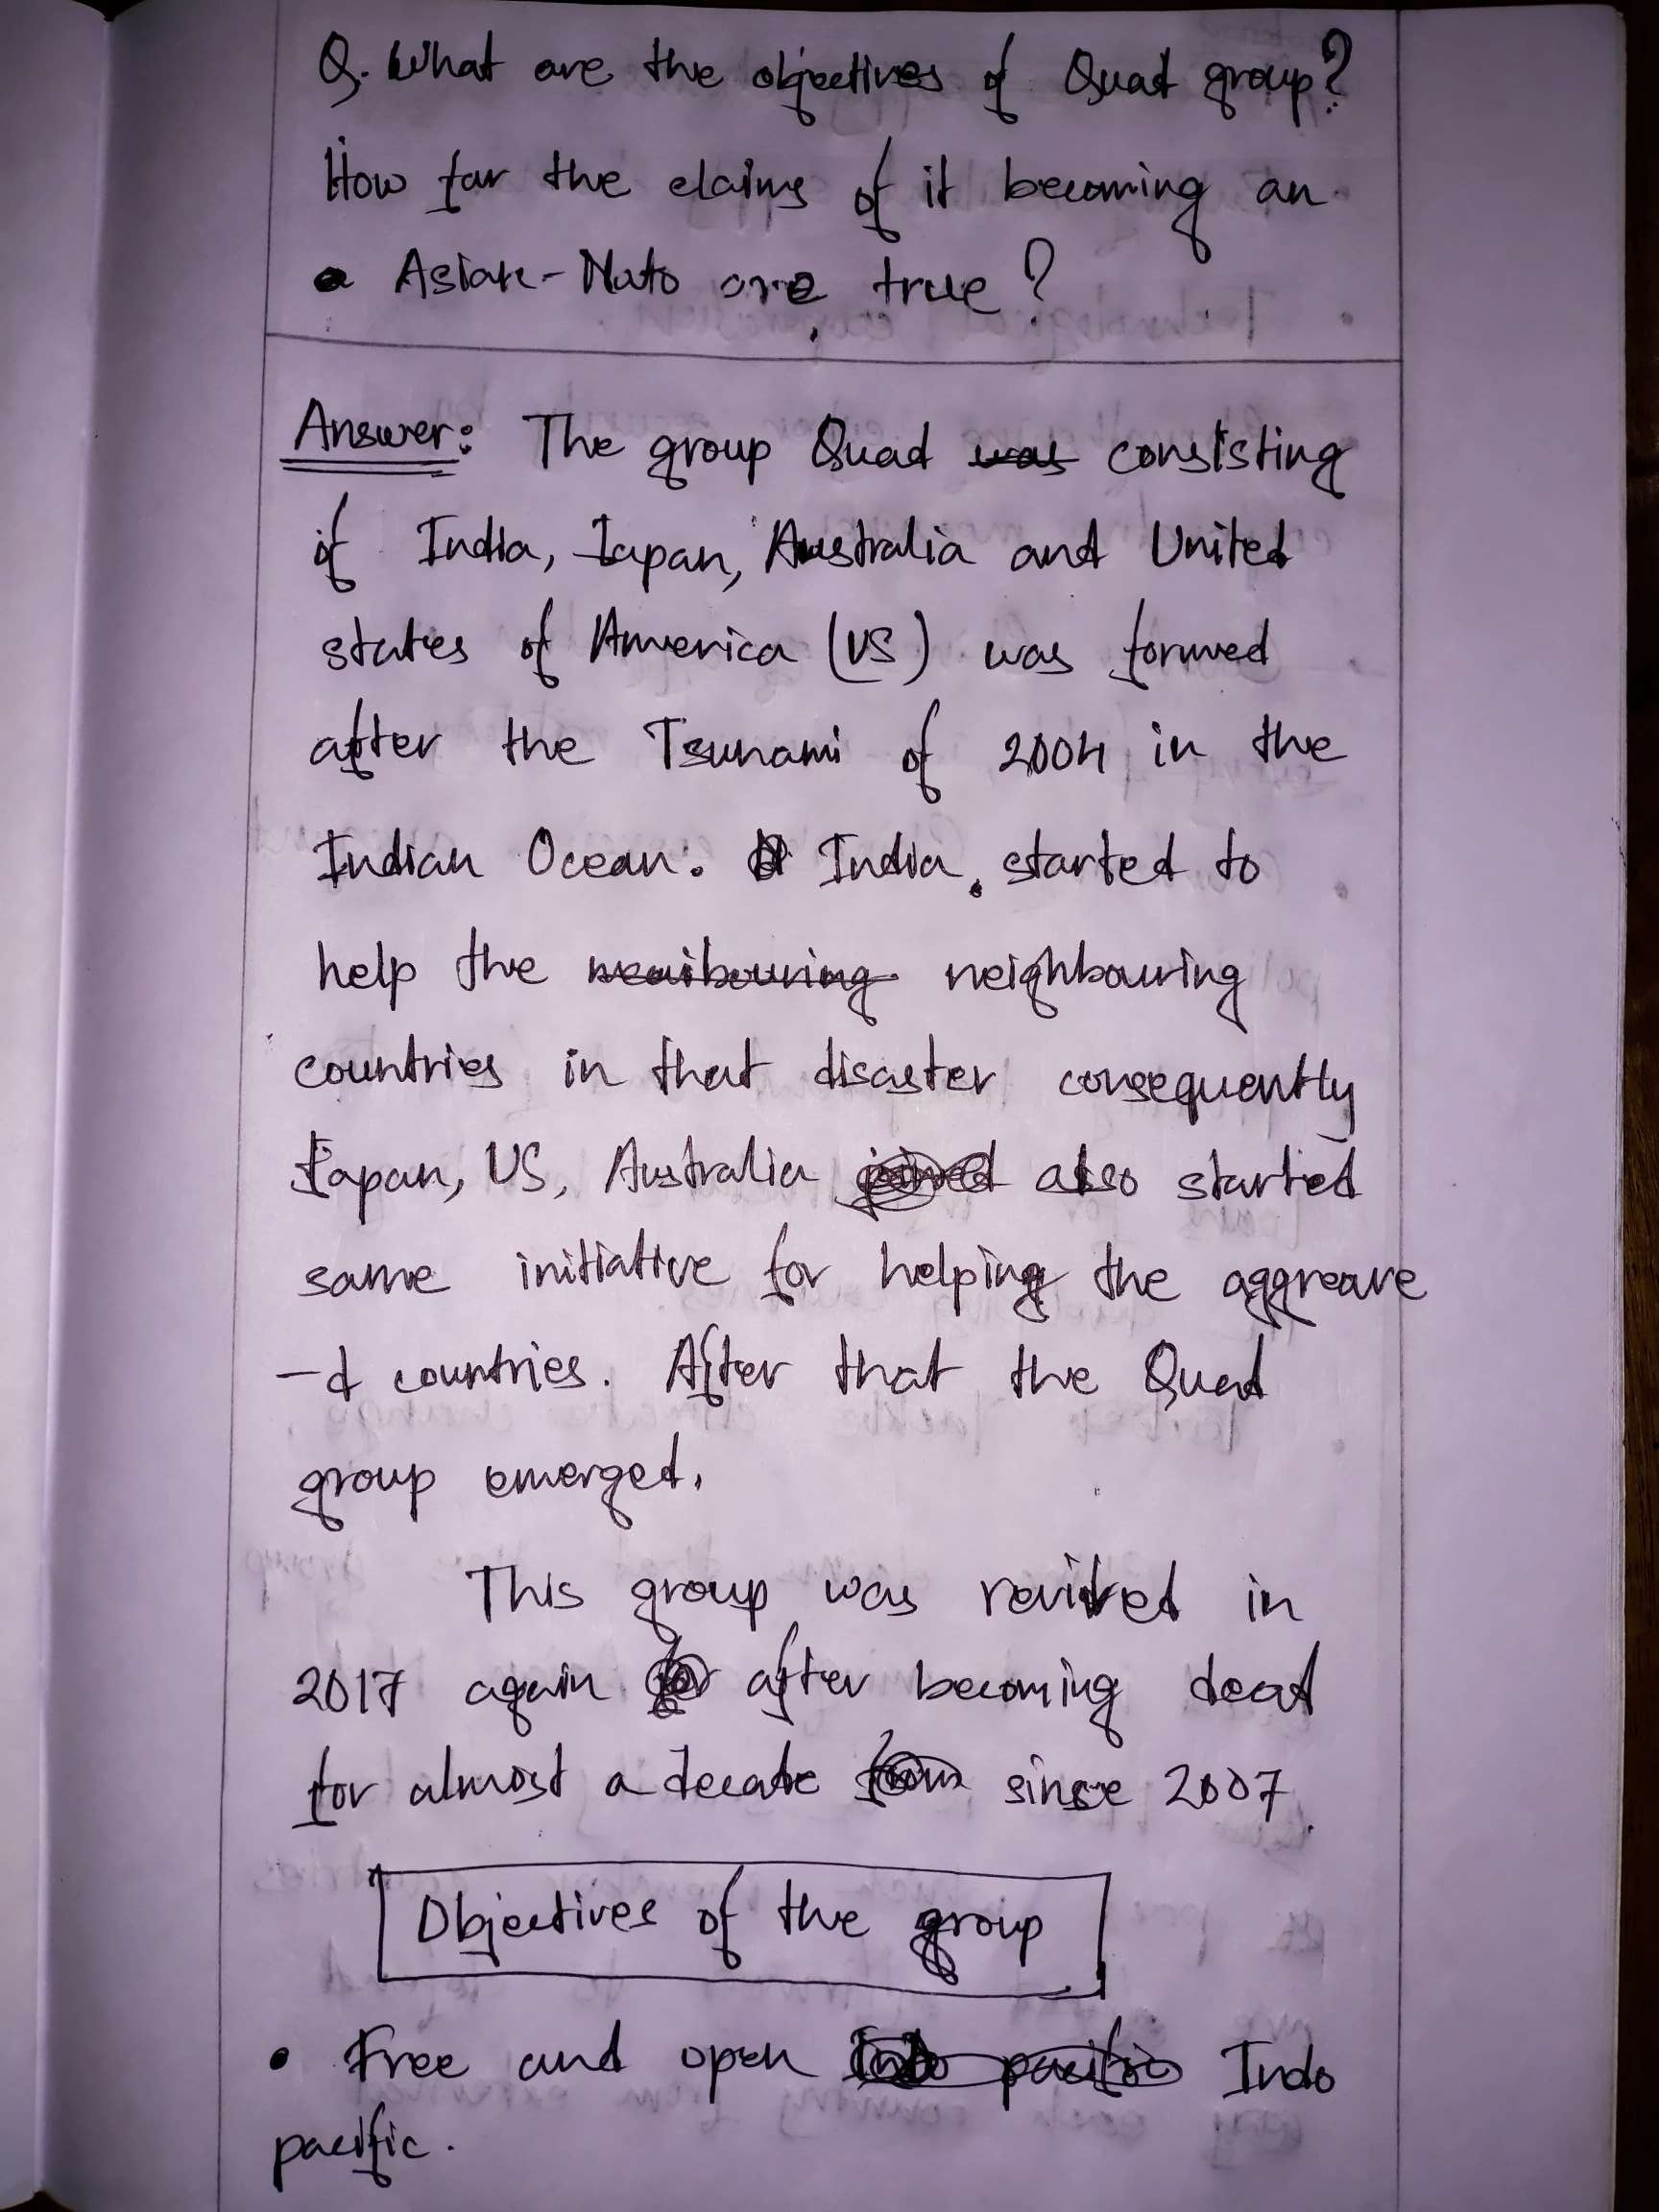 Q. What are the objectives of Quad group?
How far the claims of it becoming an
Asian-Nato are true?
Answer: The group Quad was consisting
of India, Japan, Australia and United
states of America (US) was formed
after the Tsunami of 2004 in the
Indian Ocean. India started to
help the neighbouring
countries in that disaster consequently
Japan, US, Australia joined also started
same initiative for helping the aggreave
-d countries. After that the Quad
group emerged.
This group was revived in
2017 again after becoming dead
for almost a decade from since 2007.
Objectives of the group
• Free and open Indo pacific Indo
pacific.